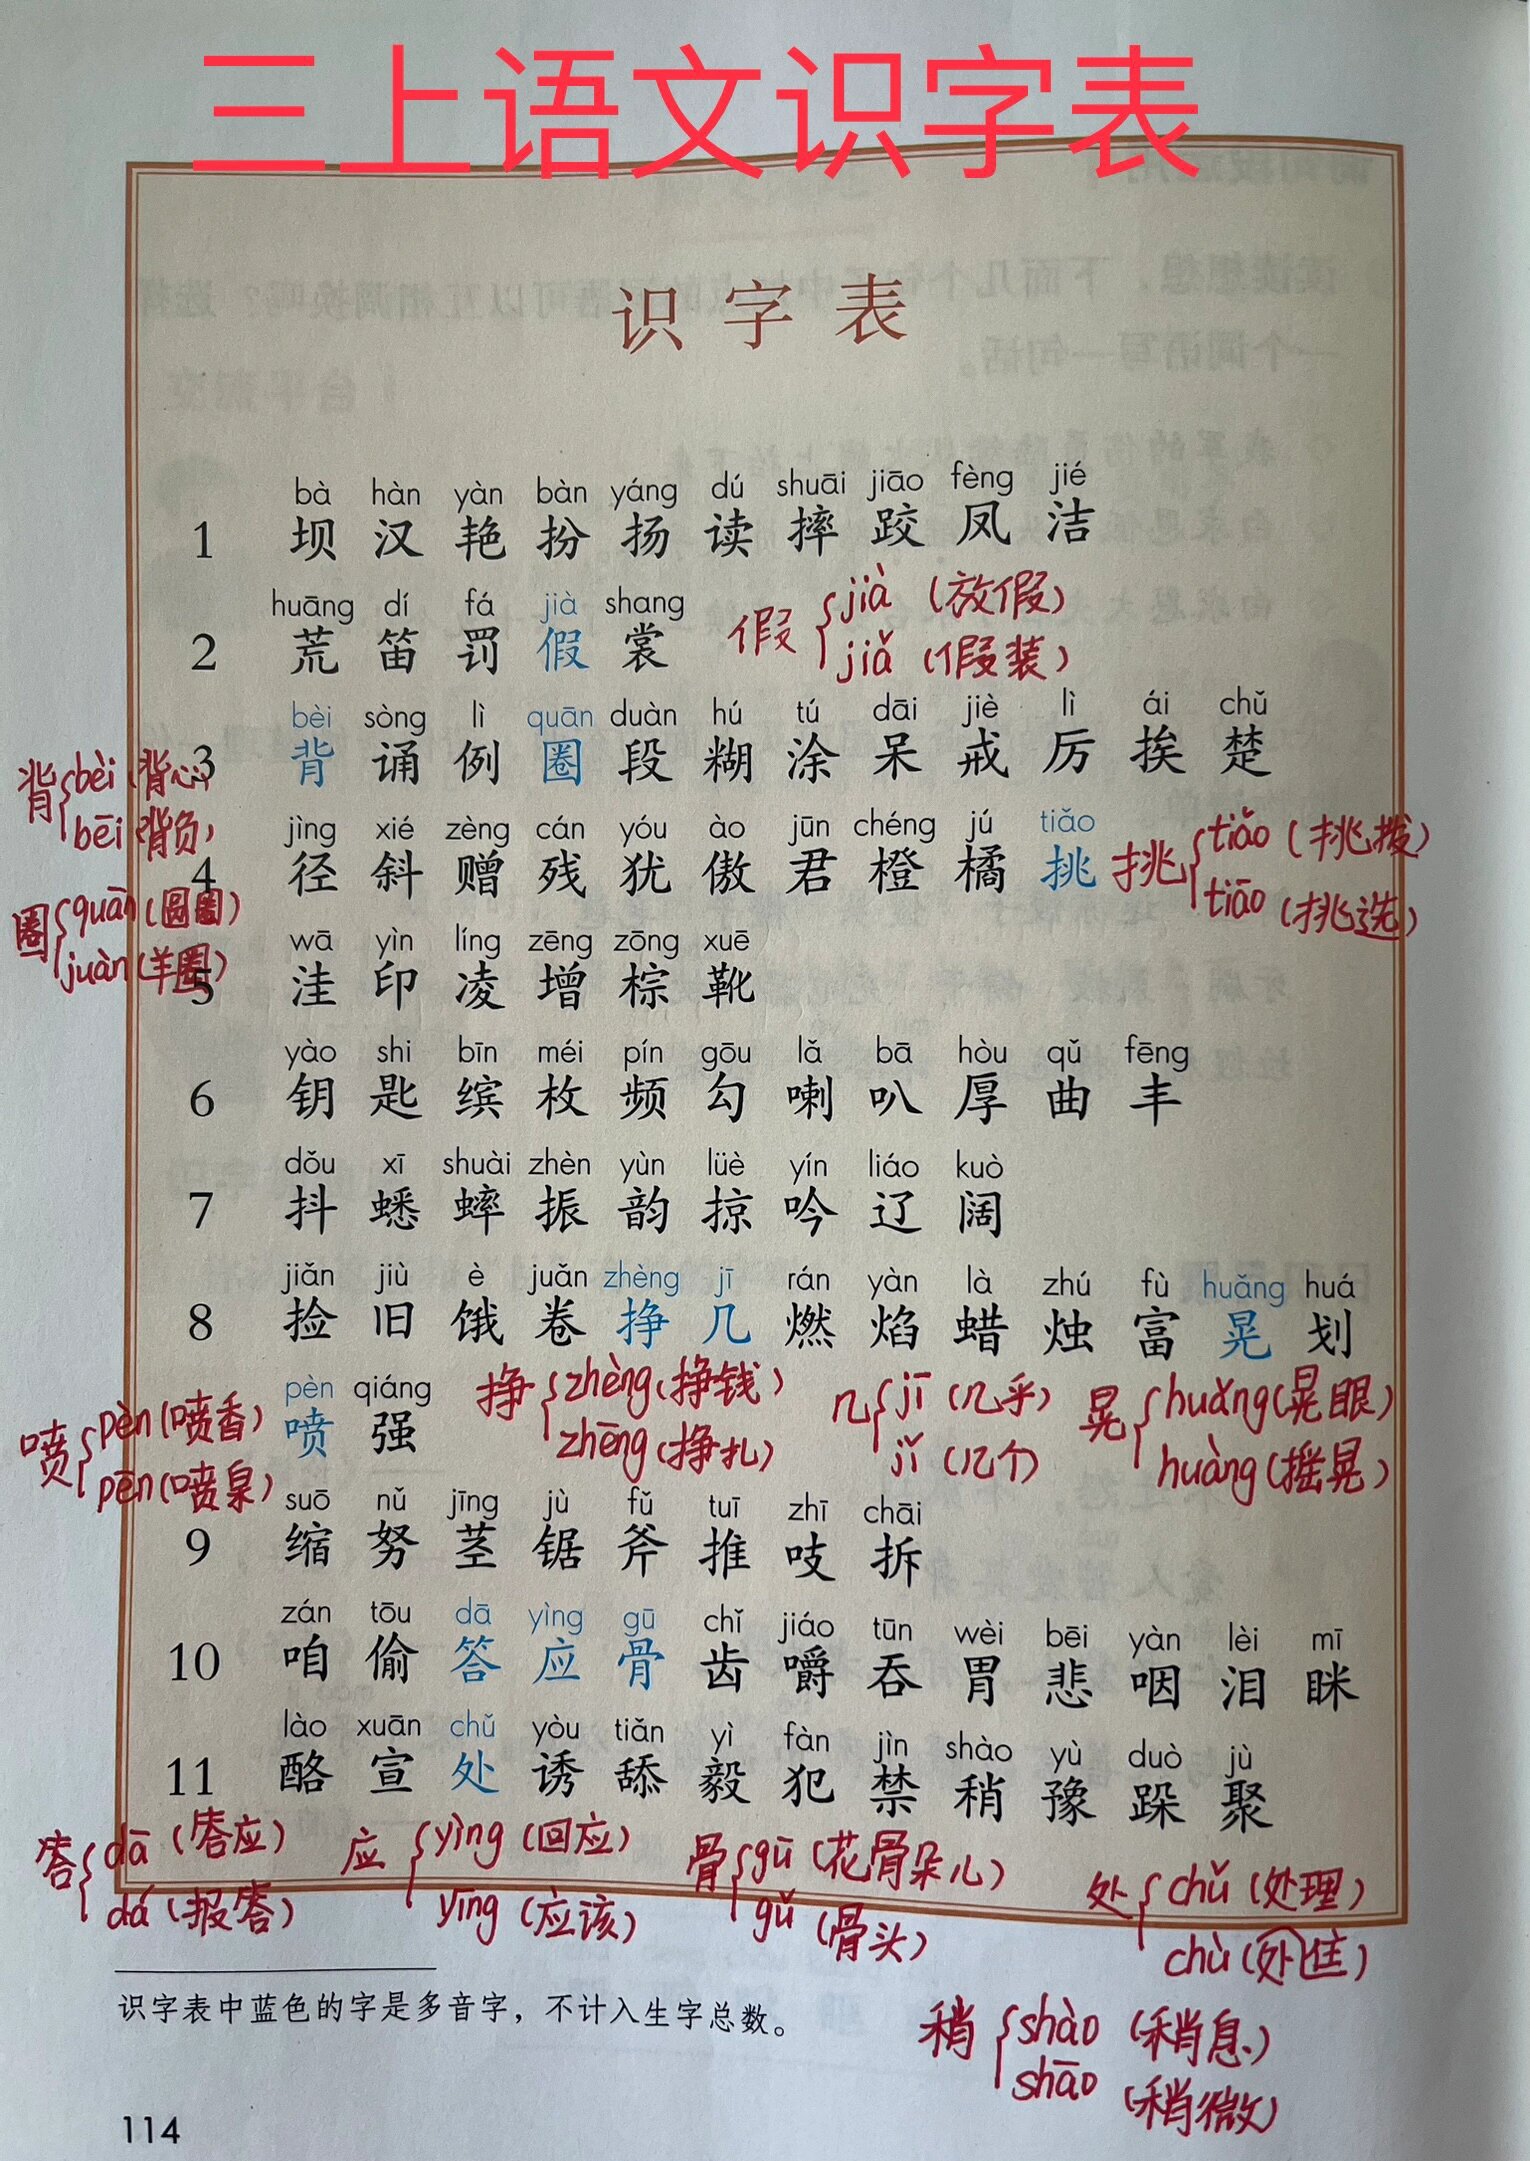 三上语文识字表
识字表
bà hàn yàn bàn yáng dú shuāi jiāo fèng jié
1 坝 汉 艳 扮 扬 读 摔 跤 凤 洁
huāng dí fá jià shang
2 荒 笛 罚 假 裳
假 jià (放假)
jiǎ (假装)
bèi sòng lì quān duàn hú tú dāi jiè lì ái chǔ
3 背 诵 例 圈 段 糊 涂 呆 戒 厉 挨 楚
背 bèi (背心)
bēi (背负)
jìng xié zèng cán yóu ào jūn chéng jú tiǎo
4 径 斜 赠 残 犹 傲 君 橙 橘 挑
挑 tiǎo (挑拨)
tiāo (挑选)
圈 quān (圆圈)
juàn (羊圈)
wā yìn líng zēng zōng xuē
5 洼 印 凌 增 棕 靴
yào shi bīn méi pín gōu lǎ bā hòu qǔ fēng
6 钥 匙 缤 枚 频 勾 喇 叭 厚 曲 丰
dǒu xī shuài zhèn yùn lüè yín liáo kuò
7 抖 蟋 蟀 振 韵 掠 吟 辽 阔
jiǎn jiù è juǎn zhèng jī rán yàn là zhú fù huǎng huá
8 捡 旧 饿 卷 挣 几 燃 焰 蜡 烛 富 晃 划
pèn qiáng
喷 强
喷 pèn (喷香)
pēn (喷泉)
挣 zhèng (挣钱)
zhēng (挣扎)
几 jī (几乎)
jǐ (几个)
晃 huǎng (晃眼)
huàng (摇晃)
suō nǔ jīng jù fǔ tuī zhī chāi
9 缩 努 茎 锯 斧 推 吱 拆
zán tōu dā yìng gū chǐ jiáo tūn wèi bēi yàn lèi mī
10 咱 偷 答 应 骨 齿 嚼 吞 胃 悲 咽 泪 眯
lào xuān chǔ yòu tiǎn yì fàn jìn shào yù duò jù
11 酪 宣 处 诱 舔 毅 犯 禁 稍 豫 跺 聚
答 dā (答应)
dá (报答)
应 yìng (回应)
yīng (应该)
骨 gū (花骨朵儿)
gǔ (骨头)
处 chǔ (处理)
chù (处住)
识字表中蓝色的字是多音字，不计入生字总数。
稍 shào (稍息)
shāo (稍微)
114